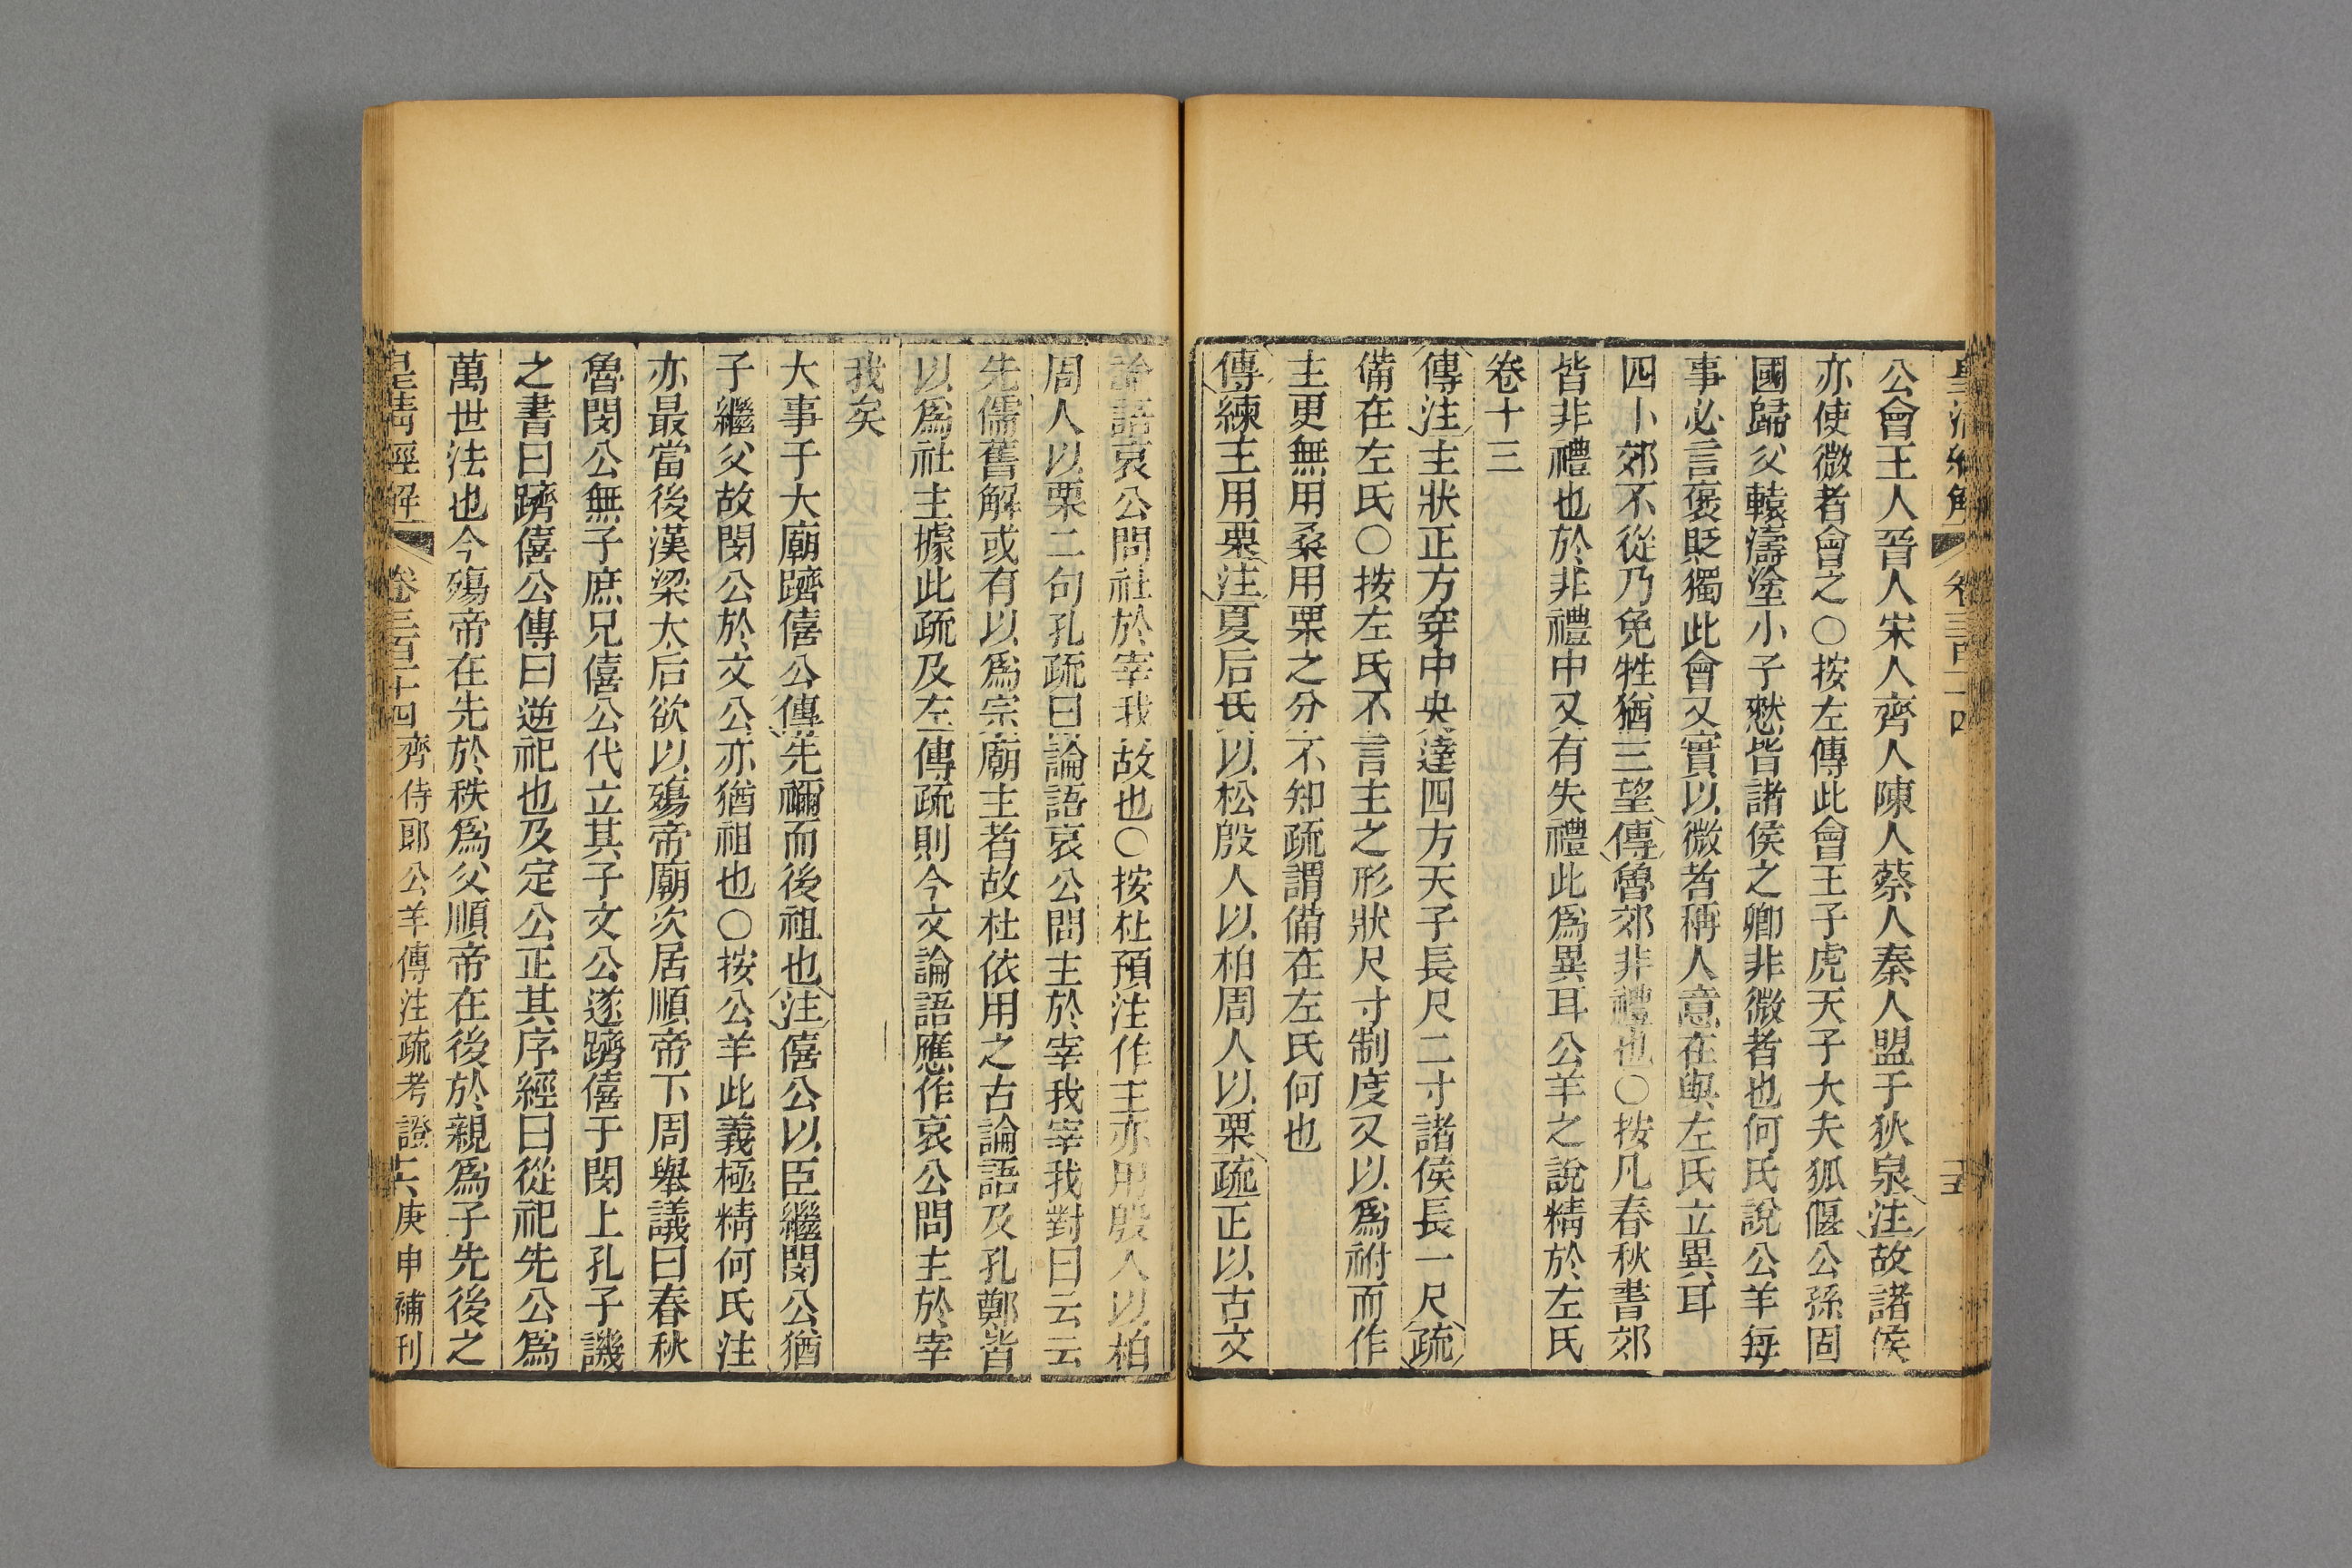 公會王人晉人宋人齊人陳人蔡人秦人盟于狄泉注故諸侯
亦使微者會之○按左傳此會王子虎天子大夫狐偃公孫固
國歸父轅濤塗小子憖皆諸侯之卿非微者也何氏說公羊每
事必言褒貶獨此會又實以微者稱人意在與左氏立異耳
四卜郊不從乃免牲猶三望傳魯郊非禮也○按凡春秋書郊
皆非禮也於非禮中又有失禮此爲異耳公羊之說精於左氏
卷十三
傳注主狀正方穿中央達四方天子長尺二寸諸侯長一尺疏
備在左氏○按左氏不言主之形狀尺寸制度又以爲祔而作
主更無用桑用栗之分不知疏謂備在左氏何也
傳練主用栗注夏后氏以松殷人以柏周人以栗疏正以古文
論語哀公問社於宰我故也○按杜預注作主亦用殷人以柏
周人以栗二句孔疏曰論語哀公問主於宰我宰我對曰云云
先儒舊解或有以爲宗廟主者故杜依用之古論語及孔鄭皆
以爲社主據此疏及左傳疏則今文論語應作哀公問主於宰
我矣
大事于大廟躋僖公傳先禰而後祖也注僖公以臣繼閔公猶
子繼父故閔公於文公亦猶祖也○按公羊此義極精何氏注
亦最當後漢梁太后欲以殤帝廟次居順帝下周舉議曰春秋
魯閔公無子庶兄僖公代立其子文公遂躋僖于閔上孔子譏
之書曰躋僖公傳曰逆祀也及定公正其序經曰從祀先公爲
萬世法也今殤帝在先於秩爲父順帝在後於親爲子先後之
皇清經解 卷三百二十四 齊侍郎公羊傳注疏考證 六 庚申補刊